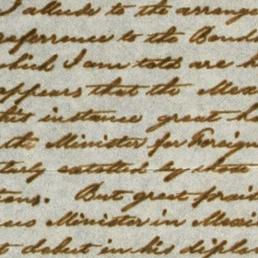 I allude to the arrang
reference to the Bond
which I am told are h
appears that the Mex
this instance great h
the Minister for Foreign
extolled by those
But great prais
Minister in Mexi
debut in his diplom